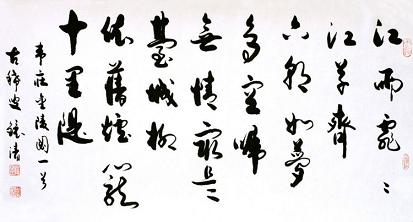 江雨霏々
江草齊
六朝如夢
鳥空啼
無情最是
臺城柳
依舊煙籠
十里堤
韋莊金陵圖一首
古稀叟